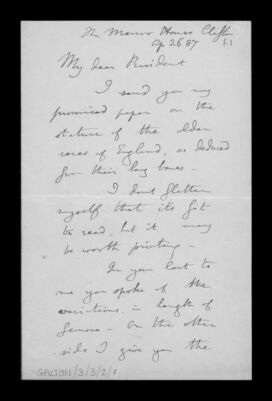 The Manor House Clifton
Ap 26 87
f.1
My dear President
I send you my
promised paper on the
stature of the older
races of England, as deduced
from their long bones -
I dont flatter
myself that its fit
to read, but it may
be worth printing -
In your last to
me you spoke of the
variations in length of
femora - on the other
side I give you the
GALTON/3/3/2/7